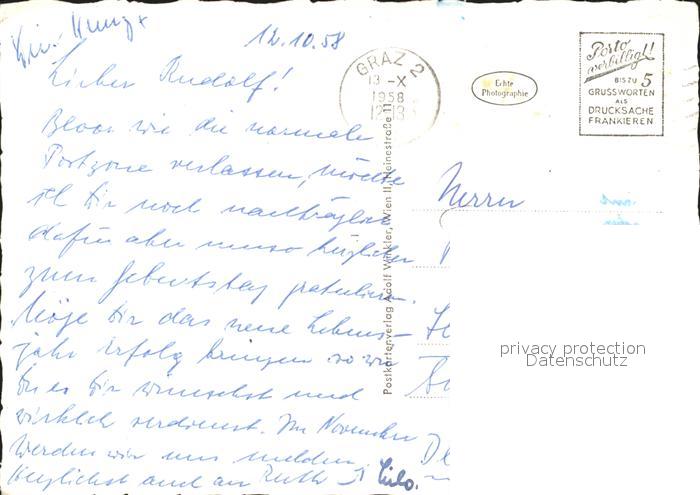 12.10.58
Lieber Rudolf!
wie die normale
Postzone verlassen, möchte
ich Dir noch nachträglich
dafür aber umso herzlicher
zum Geburtstag gratulieren.
Möge Dir das neue Lebens-
jahr Erfolg bringen so wie
Du es Dir wünschst und
wirklich verdienst. Im November
werden wir uns melden
Herzlichst auch an Ruth
GRAZ 2
13-X
1958
12-13
Echte
Photographie
Porto
verbilligt!
BIS ZU 5
GRUSSWORTEN
ALS
DRUCKSACHE
FRANKIEREN
Postkartenverlag Adolf Winkler, Wien II, Heinestraße 11
Herrn
privacy protection
Datenschutz